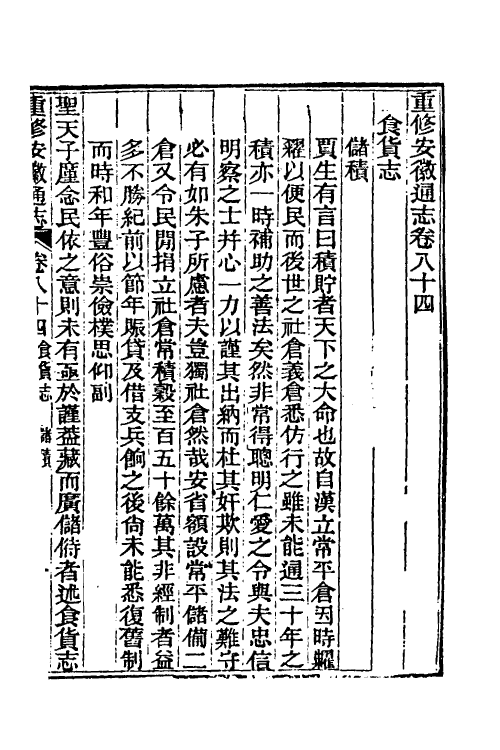 重修安徽通志卷八十四
食貨志
儲積
賈生有言曰積貯者天下之大命也故自漢立常平倉因時糶
糴以便民而後世之社倉義倉悉仿行之雖未能通三十年之
積亦一時補助之善法矣然非常得聰明仁愛之令與夫忠信
明察之士并心一力以謹其出納而杜其奸欺則其法之難守
必有如朱子所慮者夫豈獨社倉然哉安省額設常平儲備二
倉又令民閒捐立社倉常積穀至百五十餘萬其非經制者益
多不勝紀前以節年賑貸及借支兵餉之後尙未能悉復舊制
而時和年豐俗崇儉樸思仰副
聖天子廑念民依之意則未有亟於謹蓋藏而廣儲偫者述食貨志
重修安徽通志 卷八十四食貨志 儲積